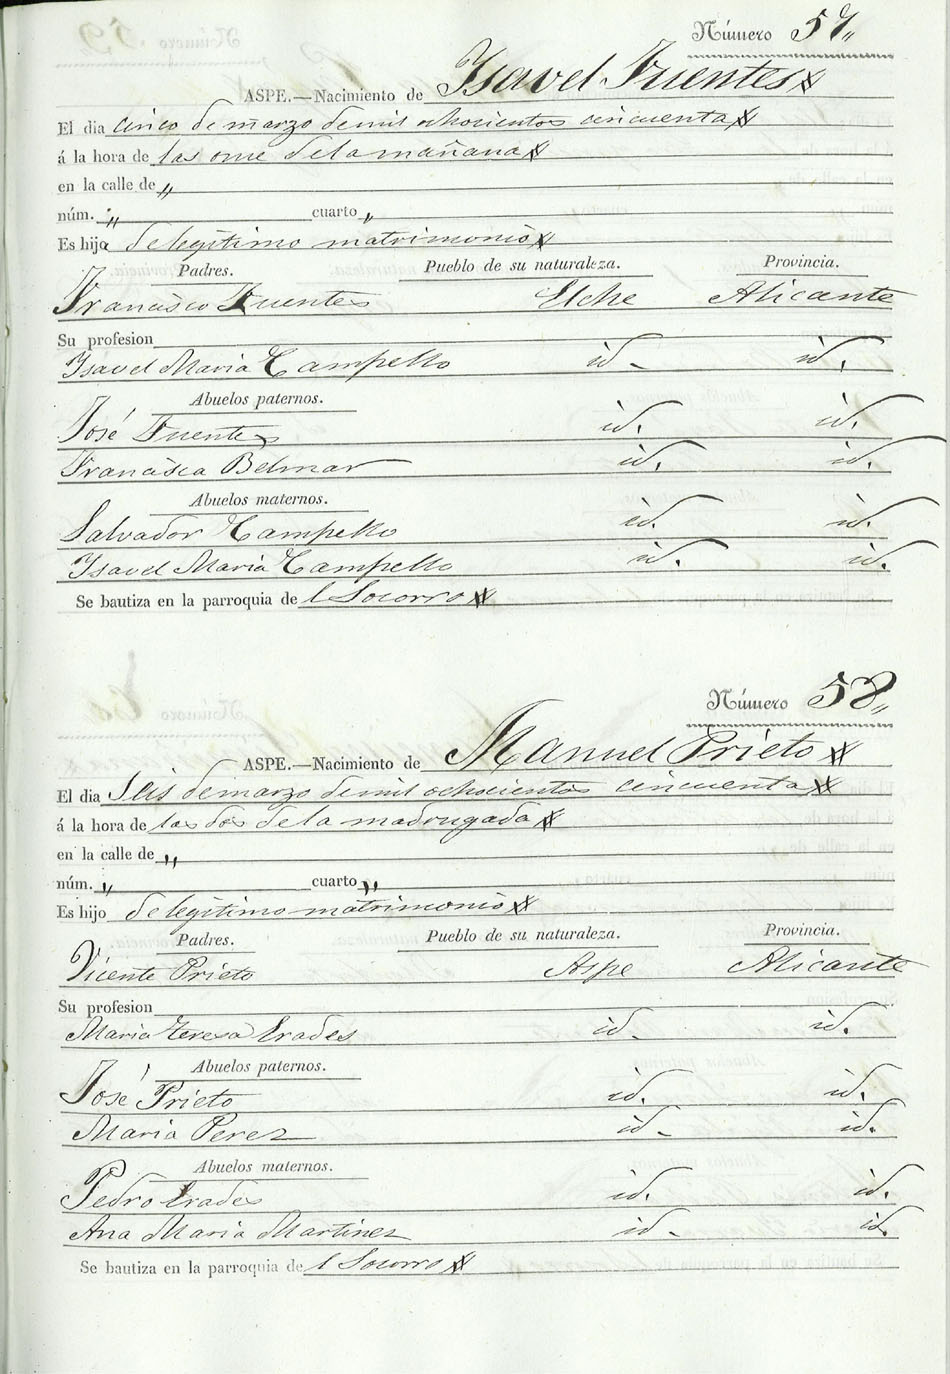 Número 57„
ASPE.—Nacimiento de Ysavel Fuentes
El dia cinco de marzo de mil ochocientos cincuenta
á la hora de las onse de la mañana
en la calle de „
núm. „ cuarto „
Es hija de legítimo matrimonio
Padres. Pueblo de su naturaleza. Provincia.
Francisco Fuentes Elche Alicante
Su profesion
Ysavel Maria Campello id. id.
Abuelos paternos.
José Fuentes id. id.
Francisca Belmar id. id.
Abuelos maternos.
Salvador Campello id. id.
Ysavel Maria Campello id. id.
Se bautiza en la parroquia de l Socorro
Número 58„
ASPE.—Nacimiento de Manuel Prieto
El dia Seis de marzo de mil ochocientos cincuenta
á la hora de las dos de la madrugada
en la calle de „
núm. „ cuarto „
Es hijo de legítimo matrimonio
Padres. Pueblo de su naturaleza. Provincia.
Vicente Prieto Aspe Alicante
Su profesion
Maria Teresa Erades id. id.
Abuelos paternos.
José Prieto id. id.
Maria Perez id. id.
Abuelos maternos.
Pedro Erades id. id.
Ana Maria Martinez id. id.
Se bautiza en la parroquia de l Socorro